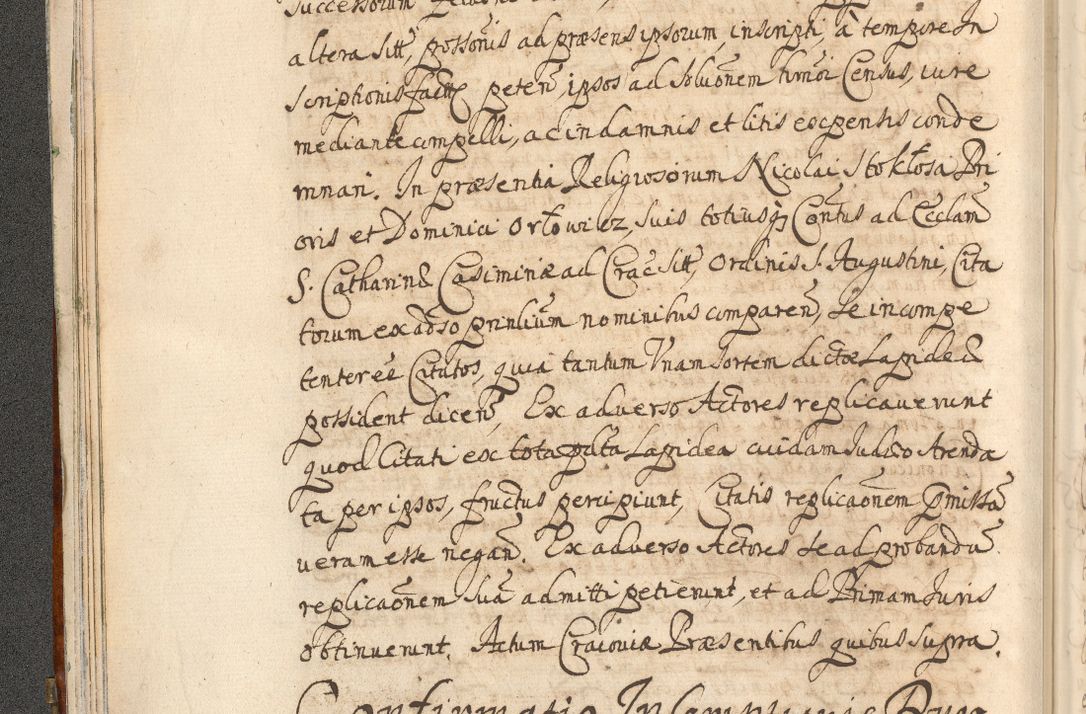 Successorum
altera sitt, possoris ad præsens ipsorum, inscripti, à tempore In
scriptionis factæ peteñ, ipsos ad solucõnem himõi Census, iure
mediante compelli, ac in damnis et litis expensis conde
mnari. In præsentia Religiosorum Nicolai Stokłosa Pri
oris et Dominici Orłowicz, suis totiusq3 Conũtus ad Eccłam
S. Catharinæ Casimiriæ ad Crac: sitt, Ordinis S. Augustini, Cita
torum ex adõso prinliũm nominibus compareñ, se incompe
tenter eẽ Citatos, quia tantum Unam sortem dictæ Lapideæ
possident diceñ, Ex adverso Actores replicaverunt
quod Citati ex tota pdta Lapidea cuidam Judæo Arenda
ta per ipsos, fructus percipiunt, Citatis replicaõnem Pmissã
veram esse negañ. Ex adverso Actores se ad probandũ
replicaõnem suã admitti petierunt, et ad Primam Juris
obtinuerunt. Actum Cracoviæ Præsentibus quibus supra.
Confirmatio